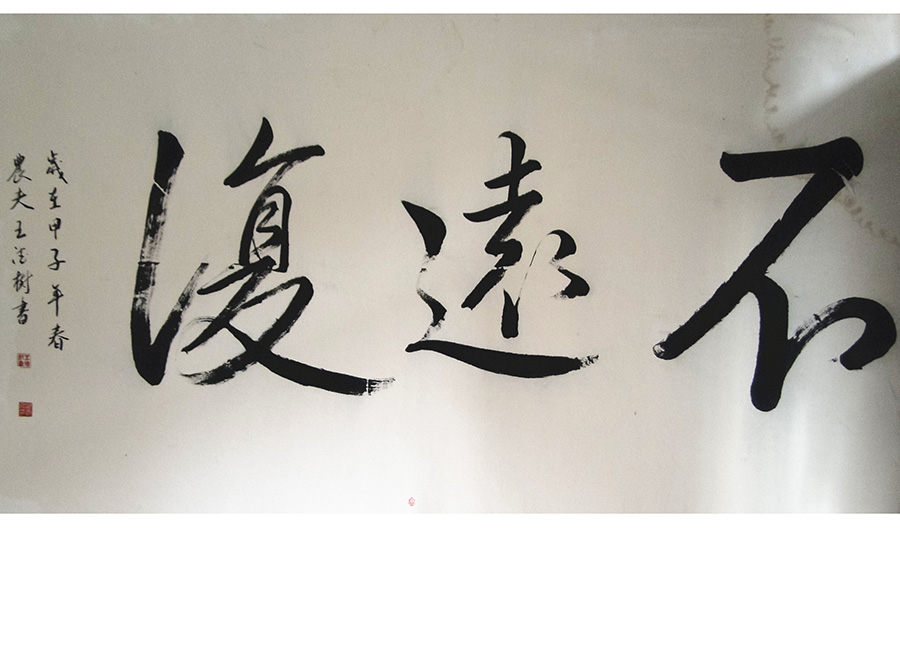 不遠復
歲在甲子年春
農夫王
樹書